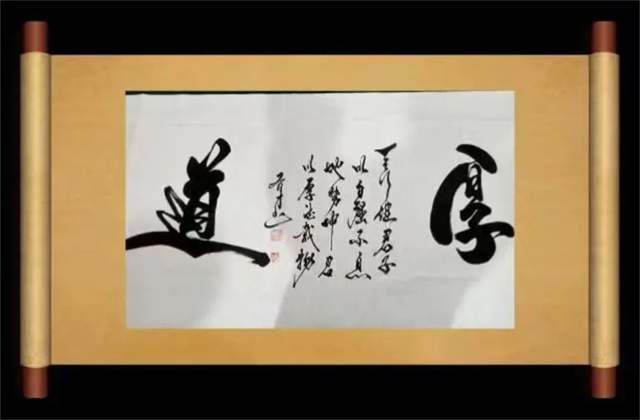 厚
天行健君子
以自强不息
地势坤君
以厚德载物
道